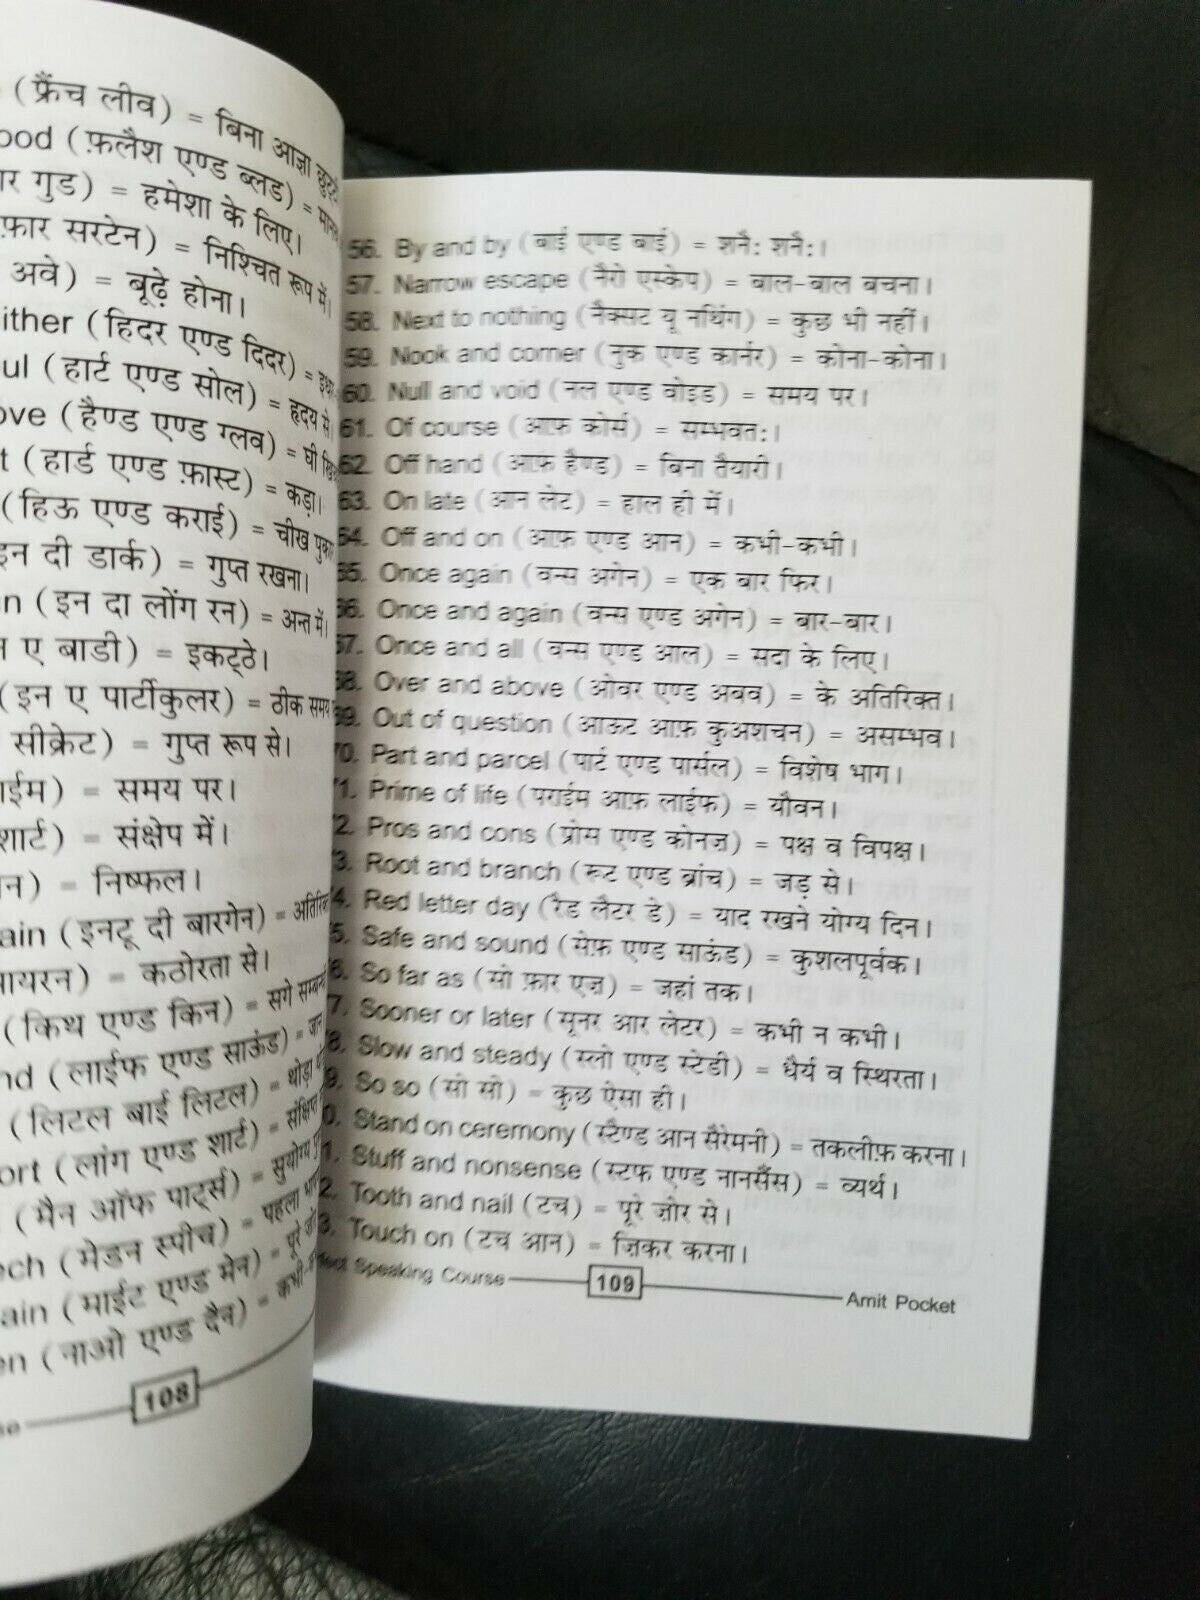 (फ्रैंच लीव) = बिना आज्ञा छुट्टी
ood (फ़लैश एण्ड ब्लड) = मानव
र गुड) = हमेशा के लिए।
फ़ार सरटेन) = निश्चित रूप में।
अवे) = बूढ़े होना।
ither (हिदर एण्ड दिदर) = इधर
ul (हार्ट एण्ड सोल) = हृदय से।
ove (हैण्ड एण्ड ग्लव) = घी
t (हार्ड एण्ड फ़ास्ट) = कड़ा।
(हिऊ एण्ड कराई) = चीख पुकार
इन दी डार्क) = गुप्त रखना।
n (इन दा लोंग रन) = अन्त में।
न ए बाडी) = इकट्ठे।
(इन ए पार्टीकुलर) = ठीक समय
सीक्रेट) = गुप्त रूप से।
ाईम) = समय पर।
शार्ट) = संक्षेप में।
न) = निष्फल।
ain (इनटू दी बारगेन) = अतिरिक्त
आयरन) = कठोरता से।
(किथ एण्ड किन) = सगे सम्बन्धी
nd (लाईफ एण्ड साऊंड) = जान
(लिटल बाई लिटल) = थोड़ा
ort (लांग एण्ड शार्ट) = संक्षिप्त
(मैन ऑफ पार्ट्स) = सुयोग्य
ech (मेडन स्पीच) = पहला
ain (माईट एण्ड मेन) = पूरे
en (नाओ एण्ड दैन) = कभी-
se 108
56. By and by (बाई एण्ड बाई) = शनैः शनैः।
57. Narrow escape (नैरो एस्केप) = बाल-बाल बचना।
58. Next to nothing (नैक्सट यू नथिंग) = कुछ भी नहीं।
59. Nook and corner (नुक एण्ड कार्नर) = कोना-कोना।
60. Null and void (नल एण्ड वोइड) = समय पर।
61. Of course (आफ़ कोर्स) = सम्भवतः।
62. Off hand (आफ़ हैण्ड) = बिना तैयारी।
63. On late (आन लेट) = हाल ही में।
64. Off and on (आफ़ एण्ड आन) = कभी-कभी।
65. Once again (वन्स अगेन) = एक बार फिर।
66. Once and again (वन्स एण्ड अगेन) = बार-बार।
67. Once and all (वन्स एण्ड आल) = सदा के लिए।
68. Over and above (ओवर एण्ड अबव) = के अतिरिक्त।
69. Out of question (आऊट आफ़ कुअशचन) = असम्भव।
70. Part and parcel (पार्ट एण्ड पार्सल) = विशेष भाग।
1. Prime of life (पराईम आफ़ लाईफ) = यौवन।
2. Pros and cons (प्रोस एण्ड कोनज़) = पक्ष व विपक्ष।
3. Root and branch (रूट एण्ड ब्रांच) = जड़ से।
4. Red letter day (रैड लैटर डे) = याद रखने योग्य दिन।
5. Safe and sound (सेफ़ एण्ड साऊंड) = कुशलपूर्वक।
6. So far as (सो फ़ार एज़) = जहां तक।
7. Sooner or later (सूनर आर लेटर) = कभी न कभी।
8. Slow and steady (स्लो एण्ड स्टेडी) = धैर्य व स्थिरता।
9. So so (सो सो) = कुछ ऐसा ही।
0. Stand on ceremony (स्टैण्ड आन सैरेमनी) = तकलीफ़ करना।
1. Stuff and nonsense (स्टफ एण्ड नानसैंस) = व्यर्थ।
2. Tooth and nail (टच) = पूरे ज़ोर से।
3. Touch on (टच आन) = ज़िकर करना।
fect Speaking Course 109 Amit Pocket